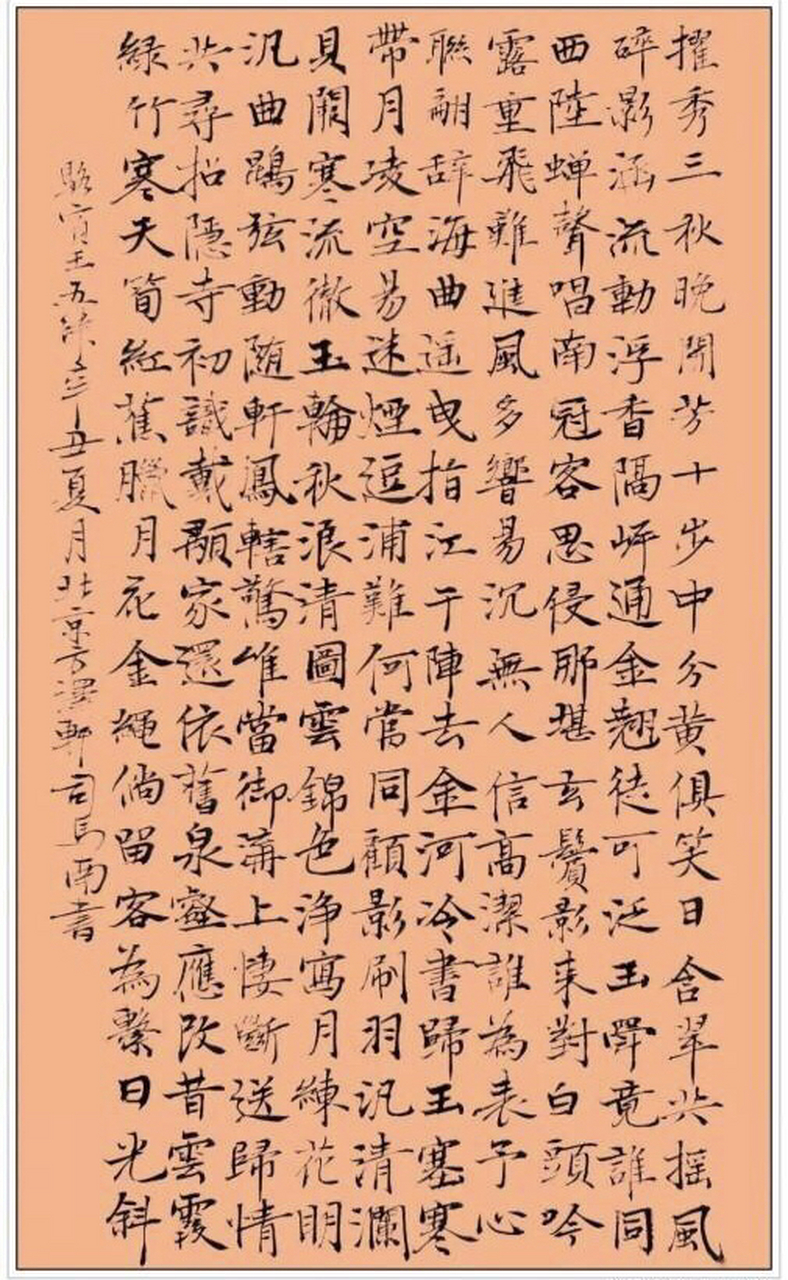 擢秀三秋晚開芳十步中分黄俱笑日含翠共摇風
碎影涵流動浮香隔岸通金翹徒可泛玉斝竟誰同
西陸蝉聲唱南冠客思侵那堪玄鬢影来對白頭吟
露重飛難進風多響易沉無人信高潔誰為表予心
聯翩辞海曲遥曳指江干陣去金河冷書歸玉塞寒
帶月凌空易迷煙逗浦難何當同顧影刷羽汎清瀾
貝闕寒流徹玉輪秋浪清圖雲錦色浄寫月練花明
汎曲鵾弦動随軒鳳轄驚唯當御溝上悽斷送歸情
共尋招隠寺初識戴顒家還依舊泉壑應改昔雲霞
緑竹寒天筍紅蕉臘月花金繩倘留客為繫日光斜
駱賓王五律辛丑夏月北京方澤軒司馬南書